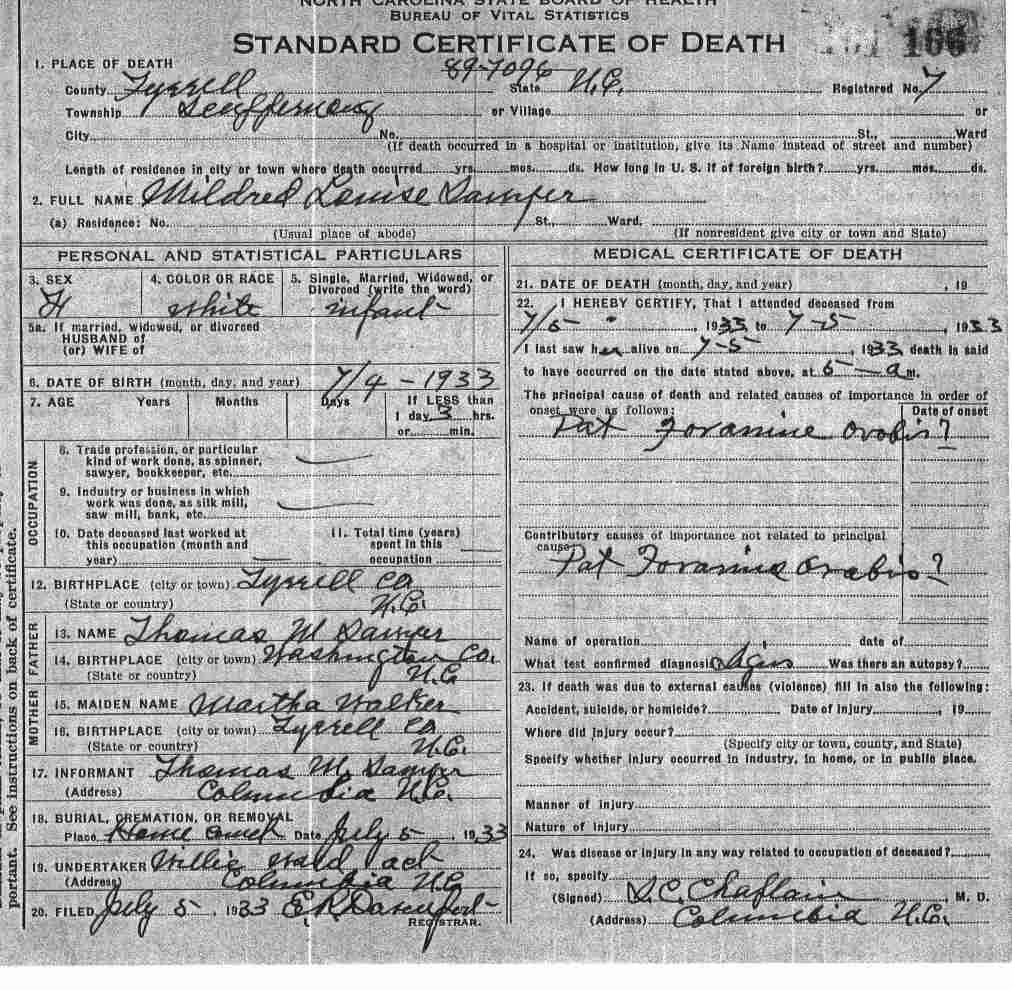 NORTH CAROLINA STATE BOARD OF HEALTH
BUREAU OF VITAL STATISTICS
STANDARD CERTIFICATE OF DEATH
166
89-7096
1. PLACE OF DEATH
County Tyrrell State N.C. Registered No. 7
Township or Village or
City No. St., Ward
(If death occurred in a hospital or institution, give its Name instead of street and number)
Length of residence in city or town where death occurred yrs. mos. ds. How long in U. S. if of foreign birth? yrs. mos. ds.
2. FULL NAME Mildred Louise
(a) Residence: No. St., Ward.
(Usual place of abode) (If nonresident give city or town and State)
PERSONAL AND STATISTICAL PARTICULARS
3. SEX 4. COLOR OR RACE 5. Single, Married, Widowed, or
Divorced (write the word)
white infant
5a. If married, widowed, or divorced
HUSBAND of
(or) WIFE of
6. DATE OF BIRTH (month, day, and year) 7/4-1933
7. AGE Years Months Days If LESS than
1 day, 3 hrs.
or min.
OCCUPATION
8. Trade profession, or particular
kind of work done, as spinner,
sawyer, bookkeeper, etc.
9. Industry or business in which
work was done, as silk mill,
saw mill, bank, etc.
10. Date deceased last worked at
this occupation (month and
year)
11. Total time (years)
spent in this
occupation
12. BIRTHPLACE (city or town) Tyrrell Co
(State or country) N.C.
FATHER
13. NAME Thomas M
14. BIRTHPLACE (city or town) Washington Co.
(State or country) N.C
MOTHER
15. MAIDEN NAME Martha Walker
16. BIRTHPLACE (city or town) Tyrrell Co
(State or country) N.C.
17. INFORMANT Thomas M.
(Address) Columbia N.C.
18. BURIAL, CREMATION, OR REMOVAL
Place Home Date July 5, 1933
19. UNDERTAKER Willie
(Address) Columbia N.C.
20. FILED July 5, 1933 E R Davenport
REGISTRAR.
MEDICAL CERTIFICATE OF DEATH
21. DATE OF DEATH (month, day, and year) , 19
22. I HEREBY CERTIFY, That I attended deceased from
7/5 " , 1933 to 7-5 , 1933
I last saw her alive on 7-5 , 1933 death is said
to have occurred on the date stated above, at 5-a m.
The principal cause of death and related causes of importance in order of
onset were as follows: Date of onset
Pat Foramine Ovobis?
Contributory causes of importance not related to principal
cause:
Pat Foramina Ovabis?
Name of operation date of
What test confirmed diagnosis Was there an autopsy?
23. If death was due to external causes (violence) fill in also the following:
Accident, suicide, or homicide? Date of injury , 19
Where did injury occur?
(Specify city or town, county, and State)
Specify whether injury occurred in industry, in home, or in public place.
Manner of injury
Nature of injury
24. Was disease or injury in any way related to occupation of deceased?
If so, specify
(Signed) M. D.
(Address) Columbia N.C.
portant. See instructions on back of certificate.